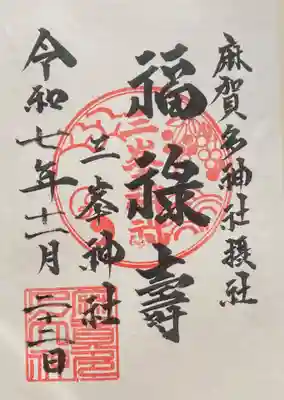 麻賀多神社摂社
福祿壽
三峯神社
令和七年十一月二十二日